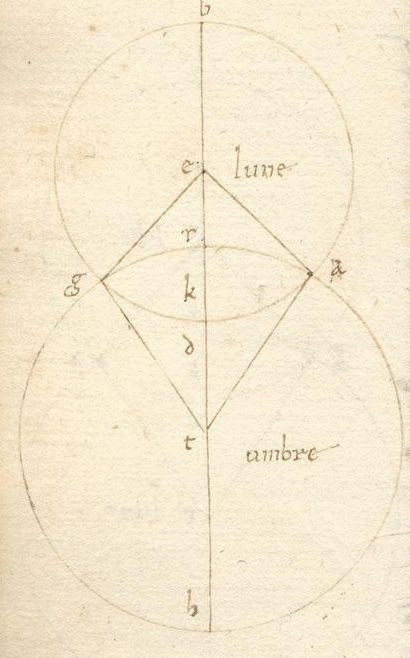 b
e lune
r
g k a
d
t umbre
h